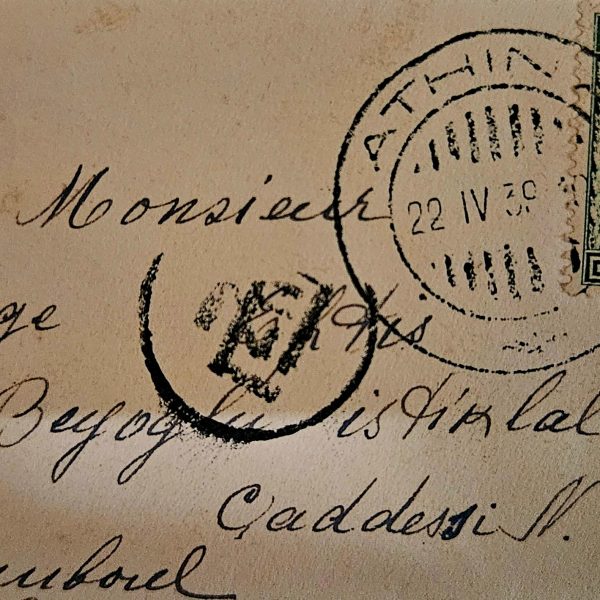 ATHIN
22 IV 39
Monsieur
ge
Beyoglu istiklal
Caddessi N.